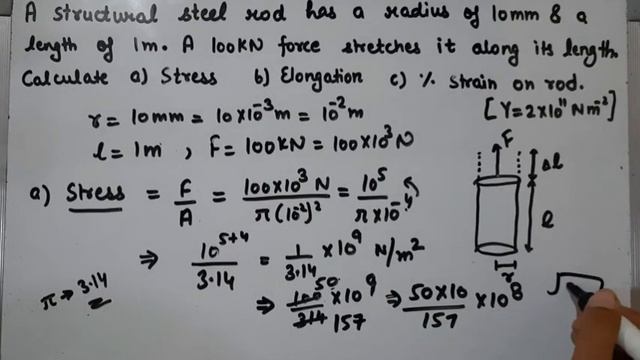 A structural steel rod has a radius of 10mm & a
length of 1m. A 100KN force stretches it along its length.
Calculate a) Stress b) Elongation c) % strain on rod.
r = 10mm = 10×10⁻³m = 10⁻²m [Y=2×10¹¹Nm⁻²]
l = 1m , F = 100KN = 100×10³N
F
Δl
l
r
a) Stress = F/A = 100×10³ N / π(10⁻²)² = 10⁵ / π×10⁻⁴
⇒ 10⁵⁺⁴ / 3.14 = 1/3.14 ×10⁹ N/m²
π → 3.14
⇒ 100 50 / 314 157 ×10⁹ ⇒ 50×10 / 157 ×10⁸